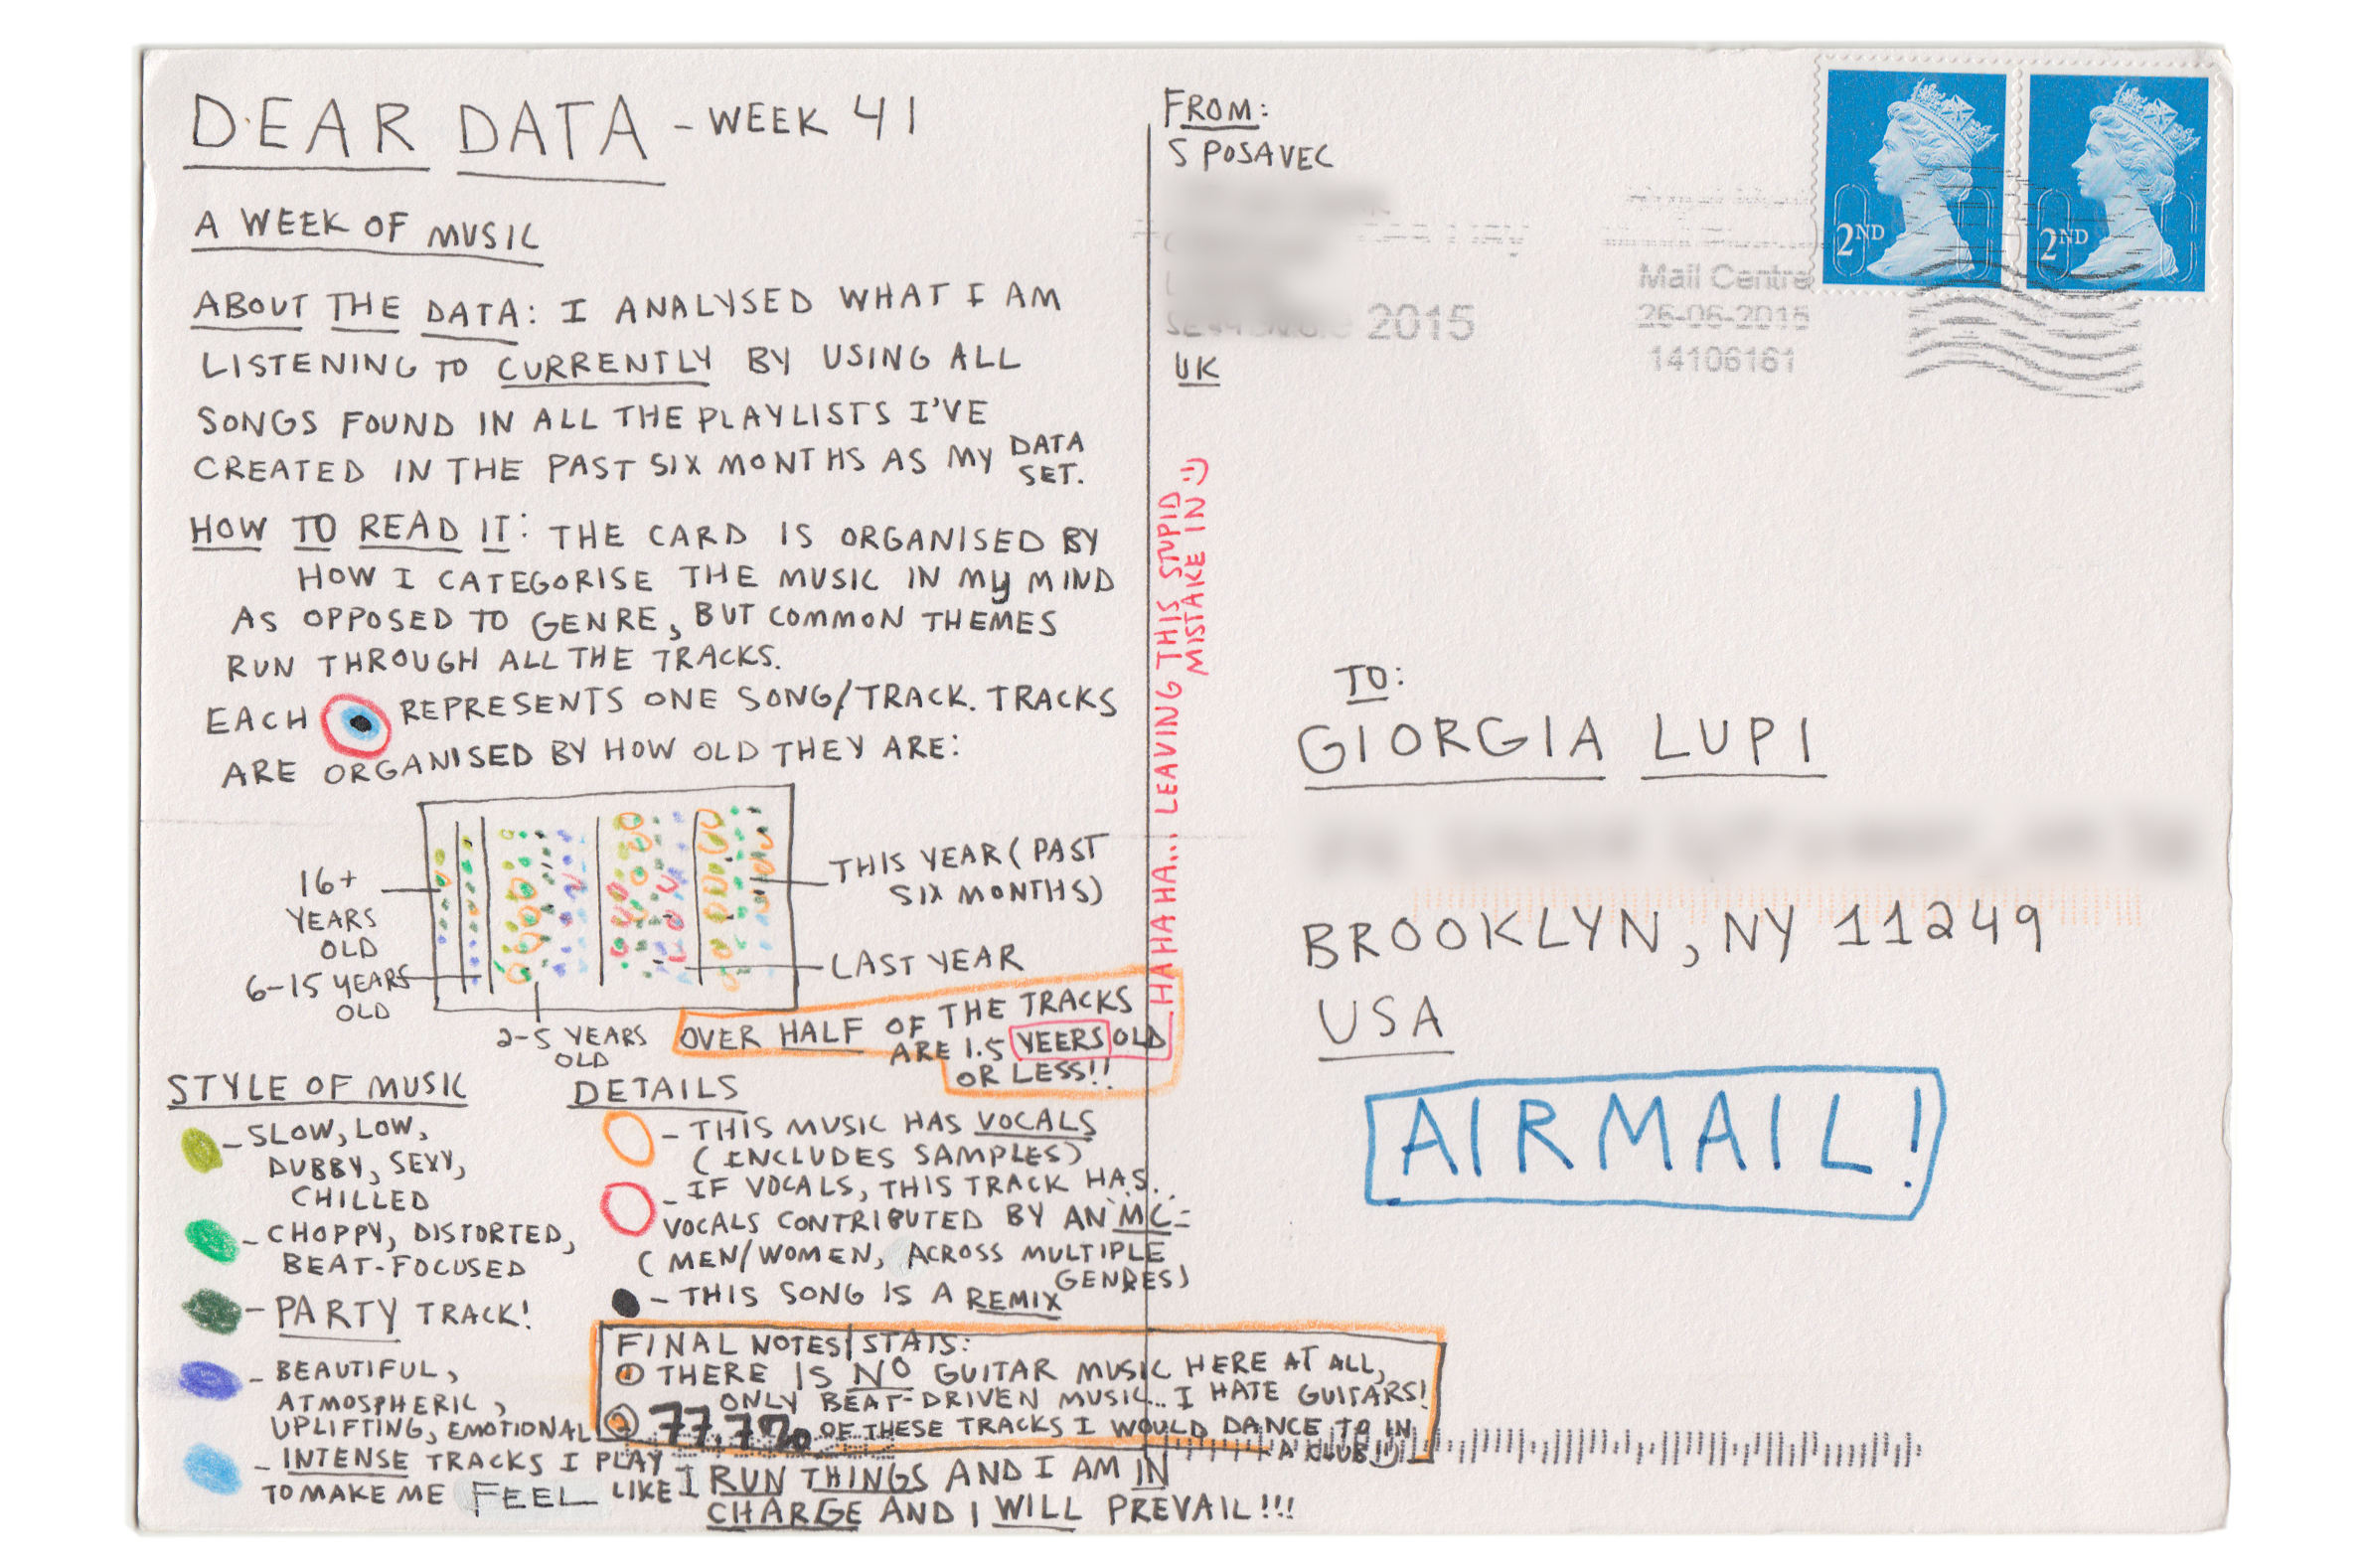 DEAR DATA - WEEK 41
A WEEK OF MUSIC
ABOUT THE DATA: I ANALYSED WHAT I AM
LISTENING TO CURRENTLY BY USING ALL
SONGS FOUND IN ALL THE PLAYLISTS I'VE
CREATED IN THE PAST SIX MONTHS AS MY DATA
SET.
HOW TO READ IT: THE CARD IS ORGANISED BY
HOW I CATEGORISE THE MUSIC IN MY MIND
AS OPPOSED TO GENRE, BUT COMMON THEMES
RUN THROUGH ALL THE TRACKS.
EACH REPRESENTS ONE SONG/TRACK. TRACKS
ARE ORGANISED BY HOW OLD THEY ARE:
16+
YEARS
OLD
6-15 YEARS
OLD
2-5 YEARS
OLD
THIS YEAR (PAST
SIX MONTHS)
LAST YEAR
OVER HALF OF THE TRACKS
ARE 1.5 YEERS OLD
OR LESS!!
HAHAHAHA... LEAVING THIS STUPID
MISTAKE IN :)
STYLE OF MUSIC
- SLOW, LOW,
DUBBY, SEXY,
CHILLED
- CHOPPY, DISTORTED,
BEAT-FOCUSED
- PARTY TRACK!
- BEAUTIFUL,
ATMOSPHERIC,
UPLIFTING, EMOTIONAL
- INTENSE TRACKS I PLAY
TO MAKE ME FEEL LIKE I RUN THINGS AND I AM IN
CHARGE AND I WILL PREVAIL!!!
DETAILS
- THIS MUSIC HAS VOCALS
(INCLUDES SAMPLES)
- IF VOCALS, THIS TRACK HAS
VOCALS CONTRIBUTED BY AN "MC"
(MEN/WOMEN, ACROSS MULTIPLE
GENRES)
- THIS SONG IS A REMIX
FINAL NOTES/STATS:
① THERE IS NO GUITAR MUSIC HERE AT ALL,
ONLY BEAT-DRIVEN MUSIC... I HATE GUITARS!
② 77.7% OF THESE TRACKS I WOULD DANCE TO IN
A CLUB!! :)
FROM:
S POSAVEC
UK
2015
Mail Centre
26-06-2015
14106161
2ND
2ND
TO:
GIORGIA LUPI
BROOKLYN, NY 11249
USA
AIRMAIL!